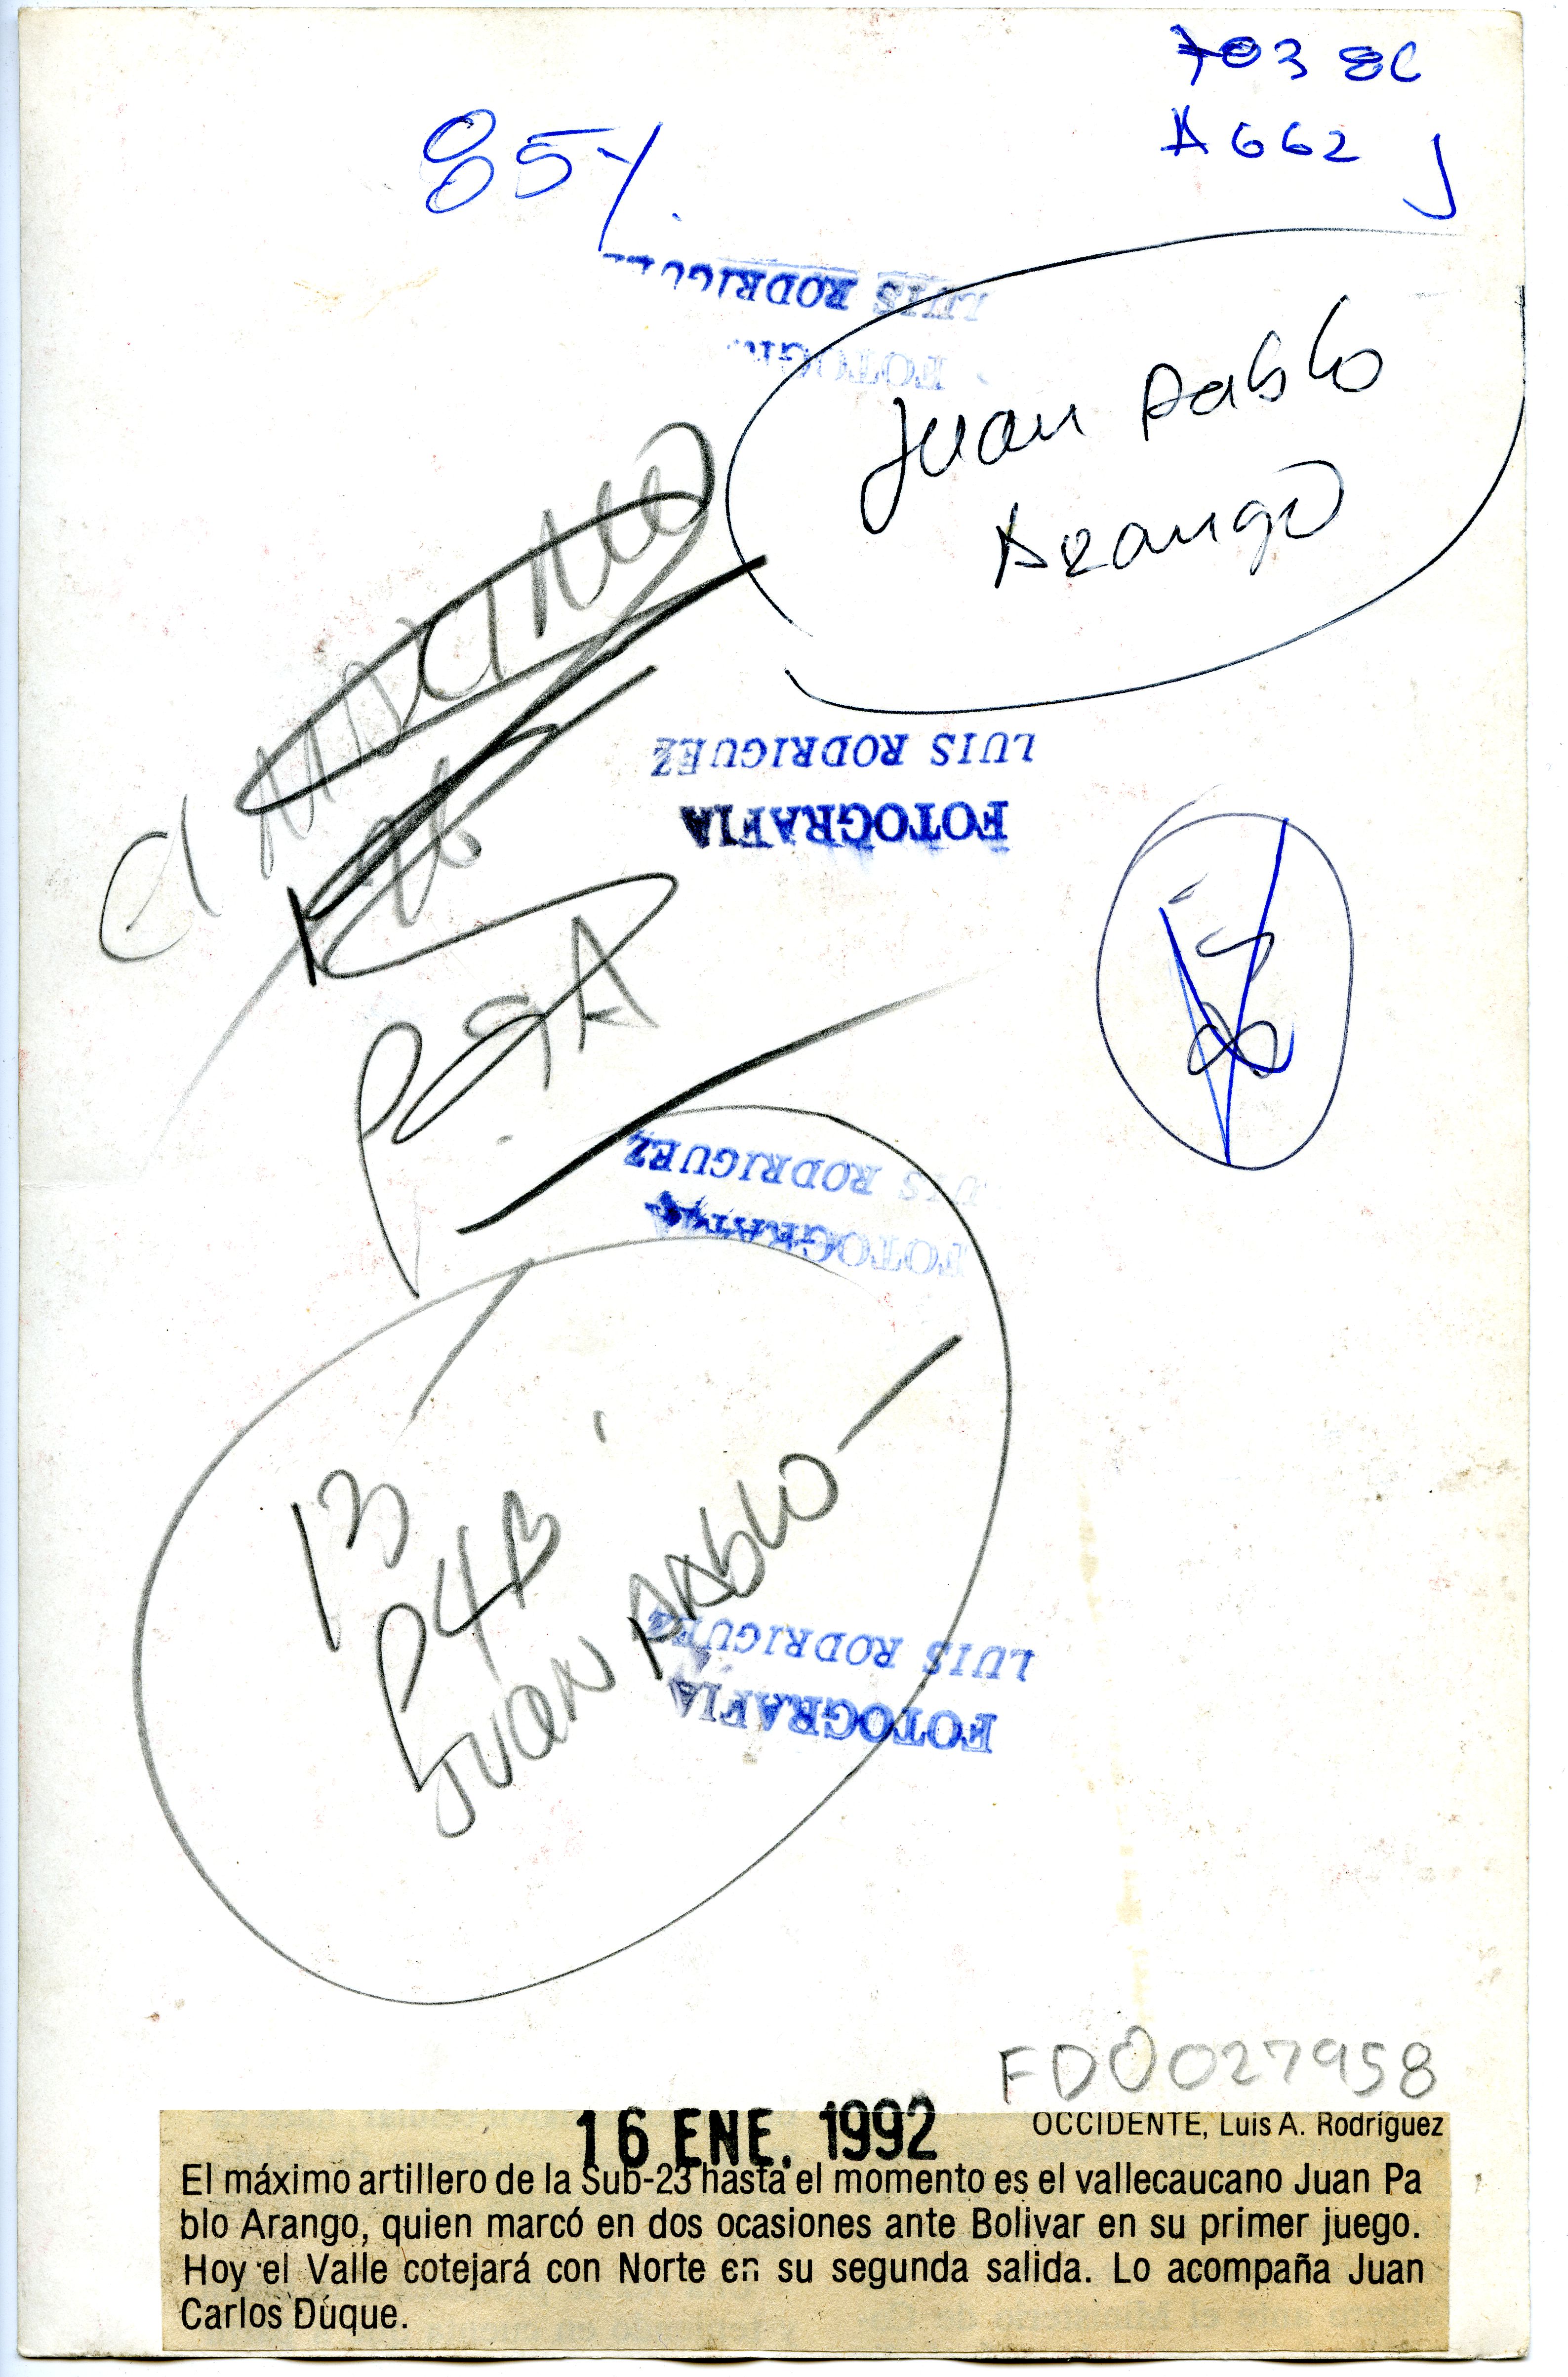 703 86
A662 J
85%
LUIS RODRIGUEZ
FOTOGRAFIA
Juan Pablo
Arango
LUIS RODRIGUEZ
FOTOGRAFIA
85%
LUIS RODRIGUEZ
FOTOGRAFIA
13
P4B
JUAN PABLO
LUIS RODRIGUEZ
FOTOGRAFIA
FD0027958
16 ENE. 1992
OCCIDENTE, Luis A. Rodríguez
El máximo artillero de la Sub-23 hasta el momento es el vallecaucano Juan Pa
blo Arango, quien marcó en dos ocasiones ante Bolivar en su primer juego.
Hoy el Valle cotejará con Norte en su segunda salida. Lo acompaña Juan
Carlos Dúque.